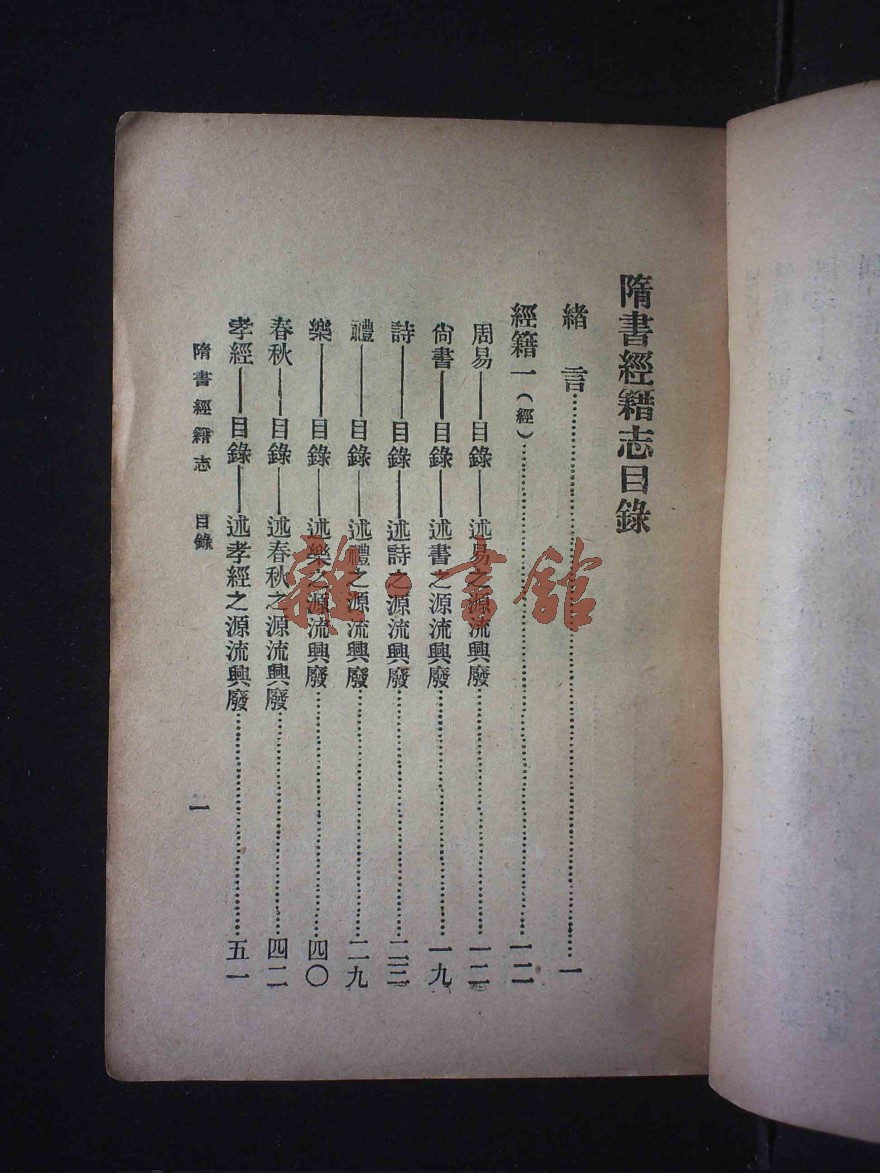 隋書經籍志目錄
緒言……一
經籍一（經）……一二
周易——目錄——述易之源流興廢……一二
尙書——目錄——述書之源流興廢……一九
詩——目錄——述詩之源流興廢……二三
禮——目錄——述禮之源流興廢……二九
樂——目錄——述樂之源流興廢……四〇
春秋——目錄——述春秋之源流興廢……四二
孝經——目錄——述孝經之源流興廢……五一
隋書經籍志 目錄
一
雜·書館